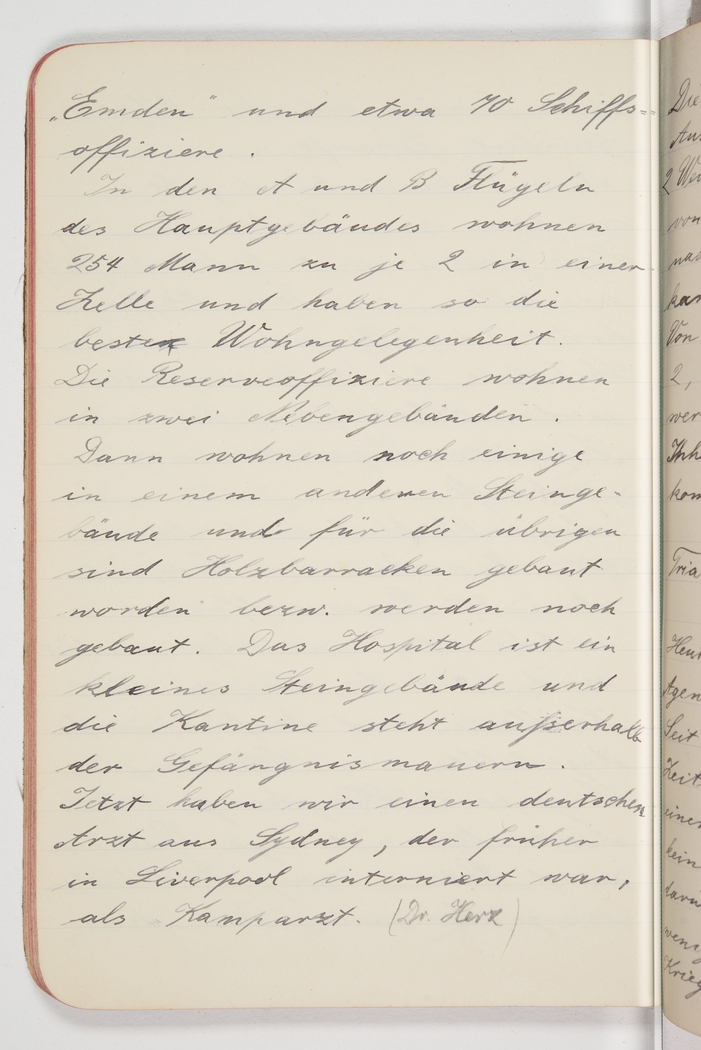 „Emden" und etwa 70 Schiffs=
offiziere.
In den A und B Flügeln
des Hauptgebäudes wohnen
254 Mann zu je 2 in einer
Zelle und haben so die
beste Wohngelegenheit.
Die Reserveoffiziere wohnen
in zwei Nebengebäuden.
Dann wohnen noch einige
in einem anderen Steinge-
bäude und für die übrigen
sind Holzbarracken gebaut
worden bezw. werden noch
gebaut. Das Hospital ist ein
kleines Steingebäude und
die Kantine steht außerhalb
der Gefängnismauern.
Jetzt haben wir einen deutschen
Arzt aus Sydney, der früher
in Liverpool interniert war,
als Kamparzt. (Dr. Herz)
Die
2
von
kar
Von
2,
wer
kom
Tria
Seit
Zeit
kein
Krieg